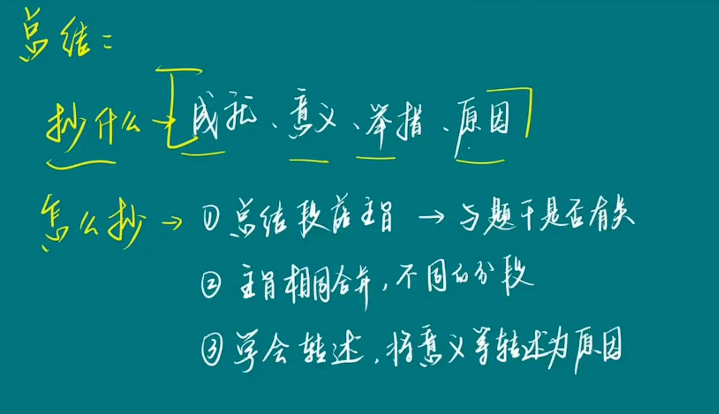 总结：
抄什么→[成就、意义、举措、原因]
怎么抄→①总结段落主旨→与题干是否有关
②主旨相同合并，不同的分段
③学会转述，将意义等转述为原因